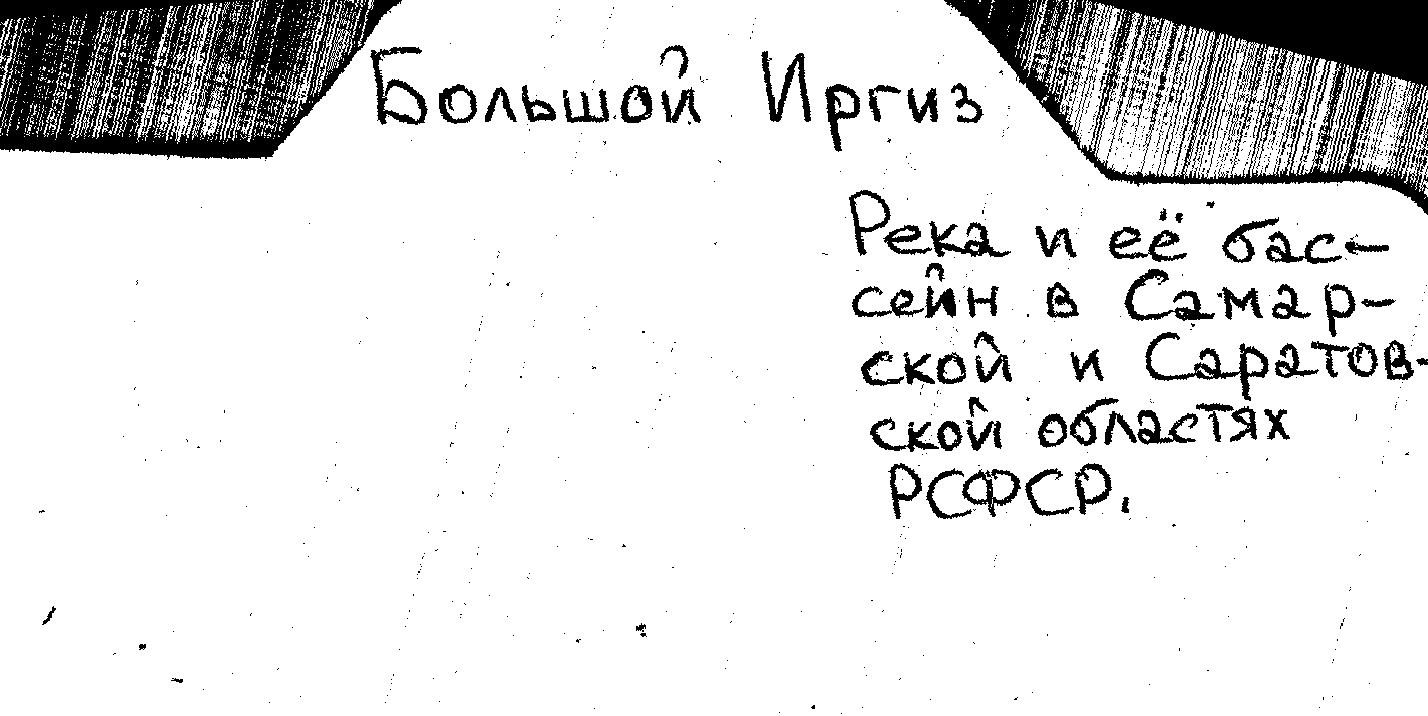 Большой Иргиз
Река и её бас-
сейн в Самар-
ской и Саратов-
ской областях
РСФСР.